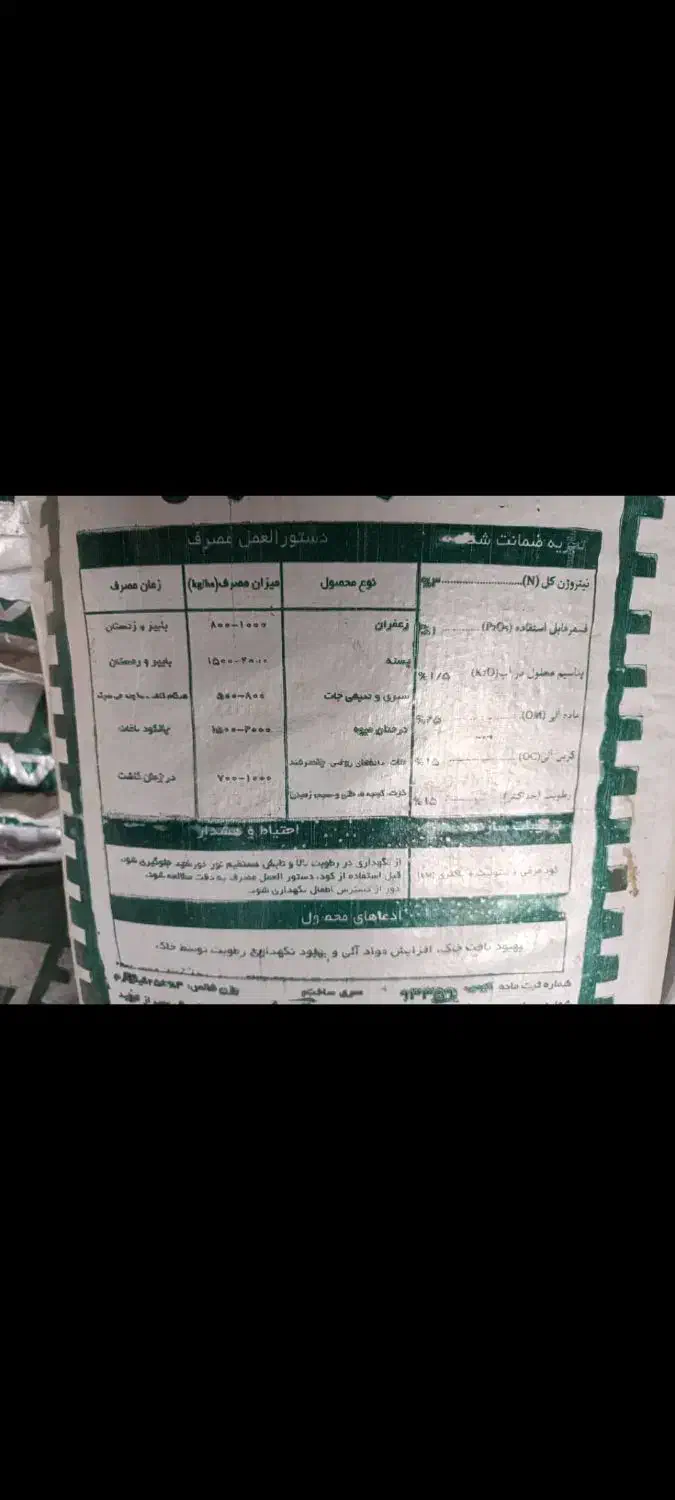 تجزیه ضمانت شده
نیتروژن کل (N)........................۳%
فسفر قابل استفاده (P2O5) ............ ۱%
پتاسیم محلول در آب (K2O) ۱/۵ %
ماده آلی (OM) ............ ۲۵%
کربن آلی (OC) ............ ۱۵%
رطوبت (حداکثر) ............ ۱۵%
دستورالعمل مصرف
نوع محصول میزان مصرف (kg/ha) زمان مصرف
زعفران ۸۰۰-۱۰۰۰ پاییز و زمستان
پسته ۱۵۰۰-۲۰۰۰ پاییز و زمستان
سبزی و صیفی جات ۵۰۰-۸۰۰ هنگام کاشت
درختان میوه ۱۵۰۰-۲۰۰۰ چالکود
غلات، دانه‌های روغنی، چغندرقند
ذرت، گوجه فرنگی و سیب زمینی ۷۰۰-۱۰۰۰ در زمان کاشت
کود مرغی
احتیاط و هشدار
از نگهداری در رطوبت بالا و تابش مستقیم نور خورشید جلوگیری شود.
قبل استفاده از کود، دستور العمل مصرف به دقت مطالعه شود.
دور از دسترس اطفال نگهداری شود.
ادعاهای محصول
بهبود بافت خاک، افزایش مواد آلی و بهبود نگهداری رطوبت توسط خاک.
شماره ثبت ماده سری ساخت وزن خالص: